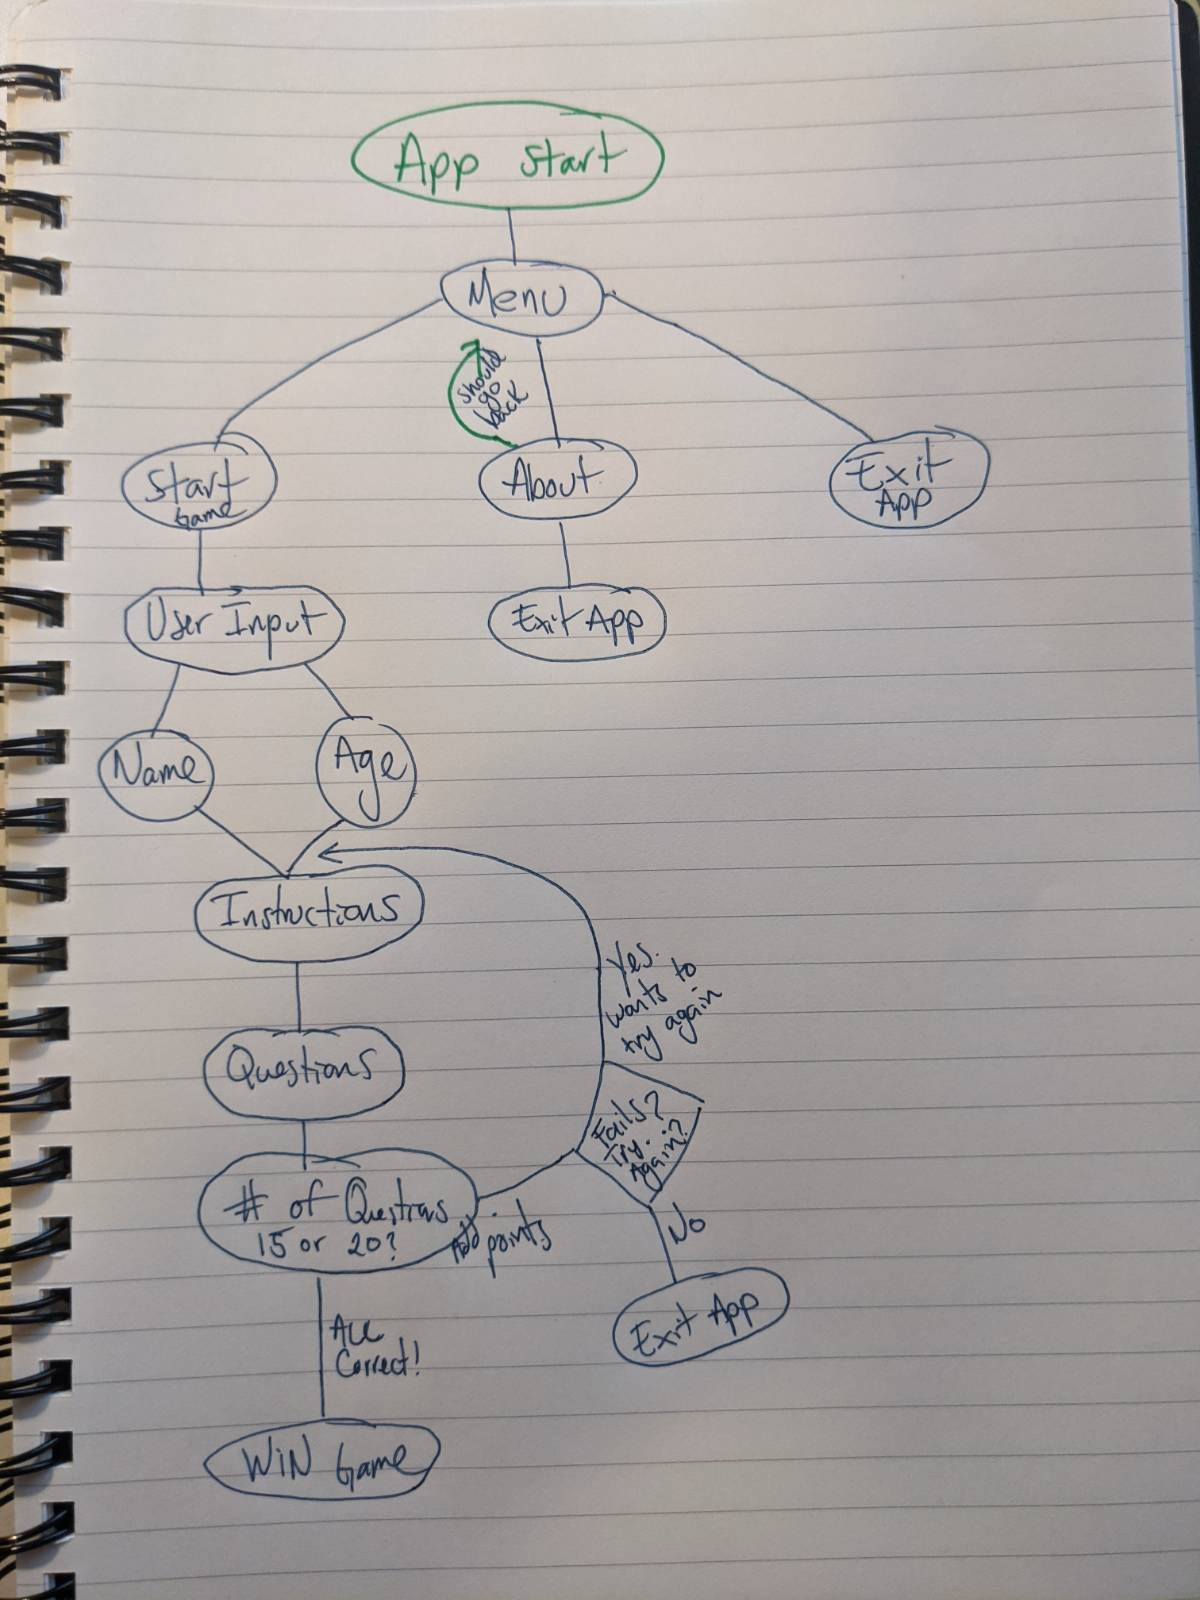 App Start
Menu
should
go
back
Start
Game
About
Exit
App
User Input
Exit App
Name
Age
Instructions
Yes.
wants to
try again
Questions
Fails?
Try.
Again?
# of Questions
15 or 20?
Add points
No
Exit App
All
Correct!
WIN Game